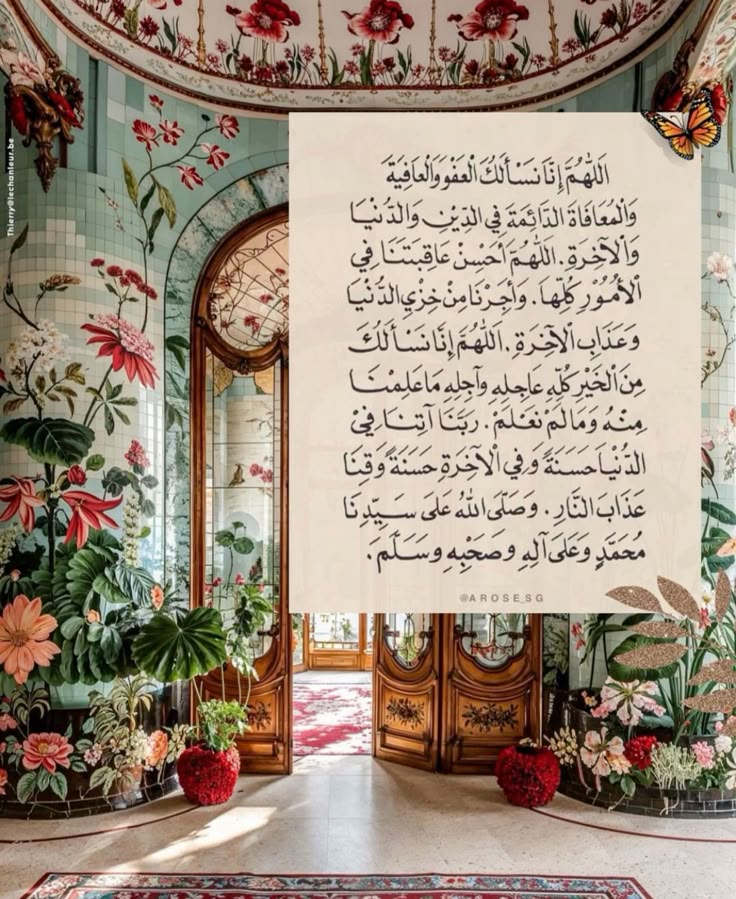 Thierry@lechanteur.be
اَللّٰهُمَّ إِنَّا نَسْأَلُكَ الْعَفْوَ وَالْعَافِيَةَ
وَالْمُعَافَاةَ الدَّائِمَةَ فِي الدِّيْنِ وَالدُّنْيَا
وَالْآخِرَةِ. اَللّٰهُمَّ أَحْسِنْ عَاقِبَتَنَا فِي
الْأُمُوْرِ كُلِّهَا. وَأَجِرْنَا مِنْ خِزْيِ الدُّنْيَا
وَعَذَابِ الْآخِرَةِ. اَللّٰهُمَّ إِنَّا نَسْأَلُكَ
مِنَ الْخَيْرِ كُلِّهِ عَاجِلِهِ وَآجِلِهِ مَا عَلِمْنَا
مِنْهُ وَمَا لَمْ نَعْلَمْ. رَبَّنَا آتِنَا فِيْ
الدُّنْيَا حَسَنَةً وَفِي الْآخِرَةِ حَسَنَةً وَقِنَا
عَذَابَ النَّارِ. وَصَلَّى اللهُ عَلَى سَيِّدِنَا
مُحَمَّدٍ وَعَلَى آلِهِ وَصَحْبِهِ وَسَلَّمَ.
@AROSE_SG